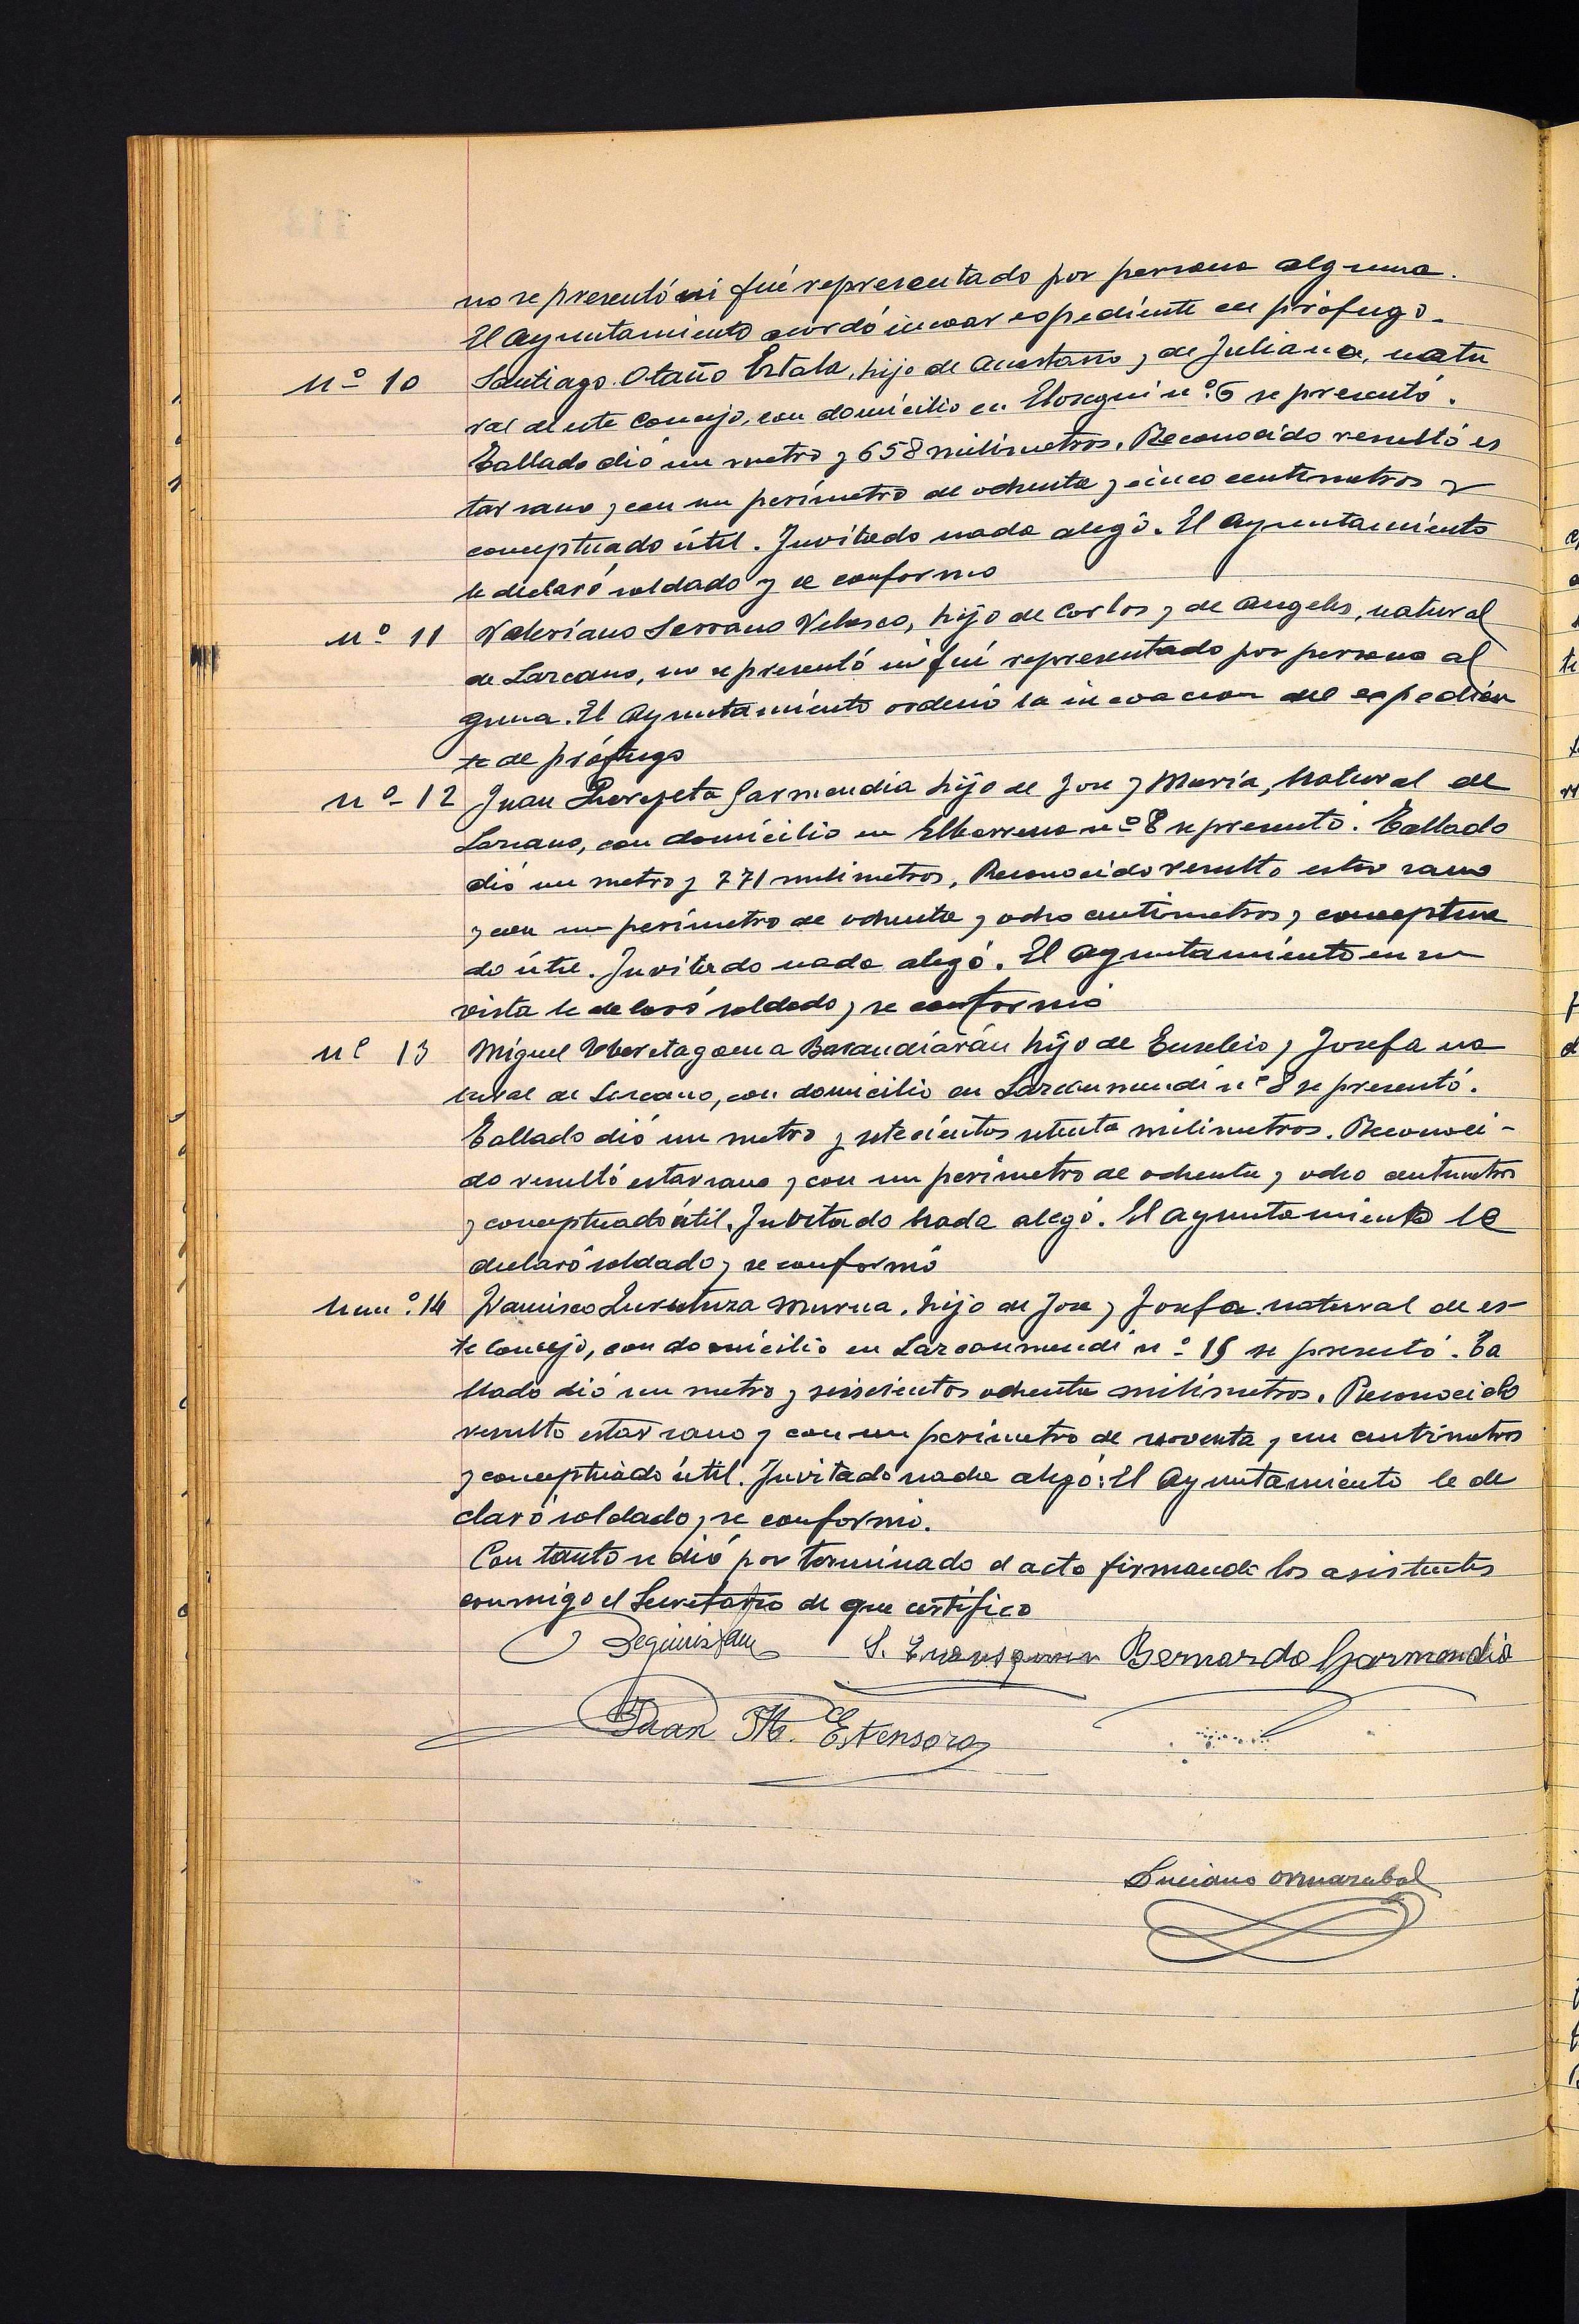 no se presentó ni fué representado por persona alguna.
El Ayuntamiento acordó incoar expediente de prófugo.
Nº 10 Santiago Otaño Estala, hijo de Anastasio y de Juliana, natu
ral de este Concejo, con domicilio en Elosegui nº 6 se presentó.
Tallado dió un metro y 658 milimetros. Reconocido resultó es
tar sano y con un perímetro de ochenta y cinco centimetros y
conceptuado útil. Invitado nada alegó. El Ayuntamiento
le declaró soldado y se conformo
nº 11 Valeriano Serrano Velasco, hijo de Carlos y de Angeles, natural
de Lazcano, no se presentó ni fué representado por persona al
guna. El Ayuntamiento ordenó la incoacion del expedien
te de prófugo
nº 12 Juan Garmendia hijo de Jose y María, Natural de
Lazcano, con domicilio en Elbarrena nº 8 se presento. Tallado
dió un metro y 771 milimetros, Reconocido resulto estar sano
y con un perímetro de ochenta y ocho centimetros y conceptua
do útil. Invitado nada alegó. El Ayuntamiento en su
vista le declaró soldado y se conformó
nº 13 Miguel Barandiarán hijo de Eusebio y Josefa na
tural de Lazcano, con domicilio en Lazcanmendi nº 8 se presentó.
Tallado dió un metro y setecientos setenta milimetros. Reconoci-
do resultó estar sano y con un perimetro de ochenta y ocho centimetros
y conceptuado útil. Invitado nada alegó. El ayuntamiento le
declaró soldado y se conformó
Num º. 14 Francisco Murua, hijo de Jose y Josefa natural de es-
te Concejo, con domicilio en Lazcanmendi nº 15 se presentó. Ta
llado dió un metro y seiscientos ochenta milimetros. Reconocido
resulto estar sano y con un perimetro de noventa y un centimetros
y conceptuado útil. Invitado nada alegó: El Ayuntamiento le de
claró soldado y se conformó.
Con tanto se dió por terminado el acto firmando los asistentes
conmigo el Secretario de que certifico
Bernardo Garmendia
Juan Mª. Estensoro
Luciano Ormazabal